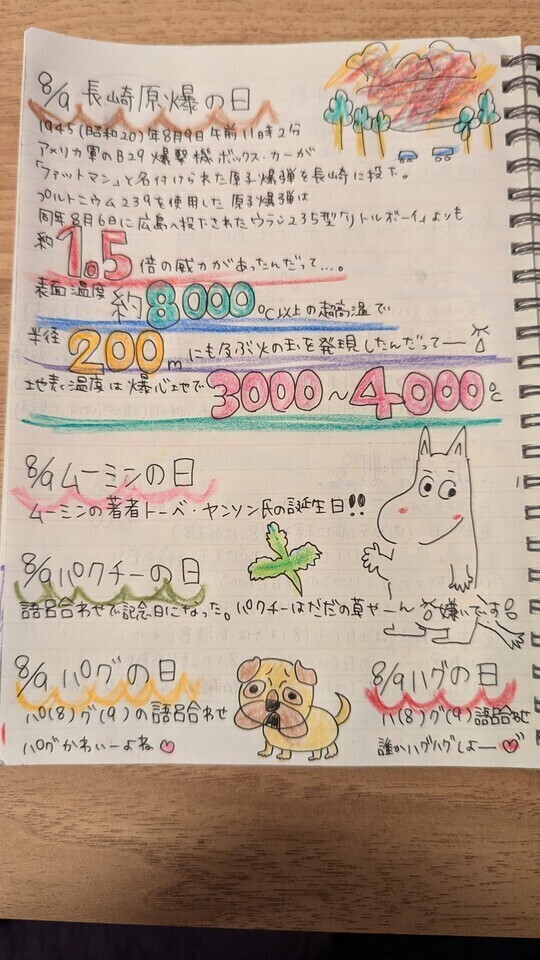 8/9 長崎原爆の日
1945(昭和20)年8月9日午前11時2分
アメリカ軍のB29爆撃機ボックス・カーが
「ファットマン」と名付けられた原子爆弾を長崎に投下。
プルトニウム239を使用した原子爆弾は
同年8月6日に広島へ投下されたウラン235型「リトルボーイ」よりも
約1.5倍の威力があったんだって…。
表面温度約8000℃以上の超高温で
半径200mにも及ぶ火の玉を発現したんだってー
地表温度は爆心地で3000〜4000℃
8/9 ムーミンの日
ムーミンの著者トーベ・ヤンソン氏の誕生日!!
8/9 パクチーの日
語呂合わせで記念日になった。パクチーはただの草せーん 嫌いです
8/9 パグの日
パ(8)グ(9)の語呂合わせ
パグかわいーよね
8/9 ハグの日
ハ(8)グ(9)語呂合わせ
誰かハグハグしよー